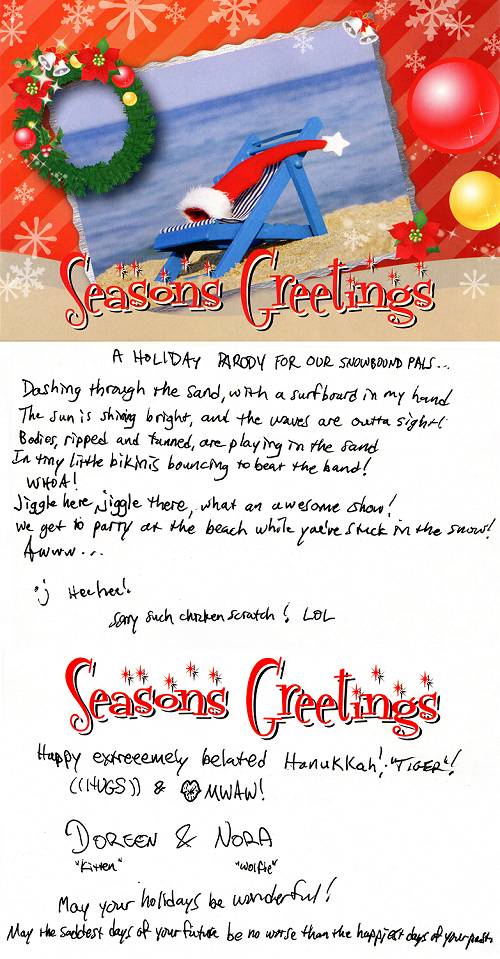 Seasons Greetings
A HOLIDAY PARODY FOR OUR SNOWBOUND PALS...
Dashing through the sand, with a surfboard in my hand
The sun is shining bright, and the waves are outta sight!
Bodies, ripped and tanned, are playing in the sand
In tiny little bikinis bouncing to beat the band!
WHOA!
Jiggle here, jiggle there, what an awesome show!
We get to party at the beach while you're stuck in the snow!
Awww...
:) Heehee!
Sorry such chicken scratch! LOL
Seasons Greetings
Happy extreeemely belated Hanukkah!, "TIGER"!
((HUGS)) & MWAW!
DOREEN & NORA
"Kitten" "Wolfie"
May your holidays be wonderful!
May the saddest days of your future be no worse than the happiest days of your past.